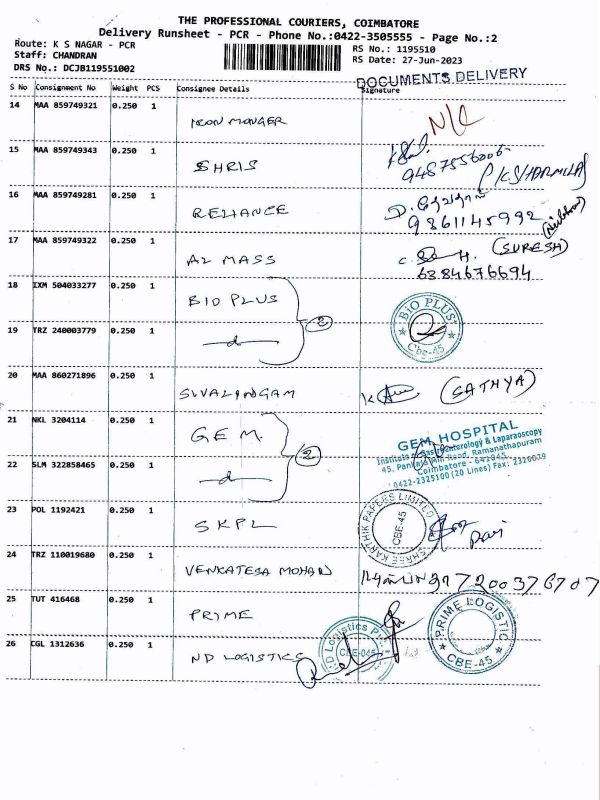 THE PROFESSIONAL COURIERS, COIMBATORE
Delivery Runsheet - PCR - Phone No.:0422-3505555 - Page No.:2
Route: K S NAGAR - PCR
RS No.: 1195510
Staff: CHANDRAN
RS Date: 27-Jun-2023
DRS No.: DCJB119551002
DOCUMENTS DELIVERY
S No Consignment No Weight PCS Consignee Details Signature
14 MAA 859749321 0.250 1 ICON MONGER N/C
15 MAA 859749343 0.250 1 SHRIS
9487556006
16 MAA 859749281 0.250 1 RELIANCE
9861145992
17 MAA 859749322 0.250 1 A2 MASS (SURESH)
6384676694
18 IXM 504033277 0.250 1 BIO PLUS
2
BIO PLUS
CBE-45
19 TRZ 240003779 0.250 1
20 MAA 860271896 0.250 1 SIVALINGAM (SATHYA)
21 NKL 3204114 0.250 1 GEM
2
GEM HOSPITAL
Institute of Gastroenterology & Laparaoscopy
45, Pankaja Mill Road, Ramanathapuram
Coimbatore - 641045
0422-2325100 (20 Lines) Fax: 2320879
22 SLM 322858465 0.250 1
23 POL 1192421 0.250 1 SKPL
SHREE KARTHIK PAPERS LIMITED
CBE-45
Ravi
24 TRZ 110019680 0.250 1 VENKATESA MOHAN
25 TUT 416468 0.250 1 PRIME
PRIME LOGISTIC
CBE-45
26 CGL 1312636 0.250 1 ND LOGISTICS